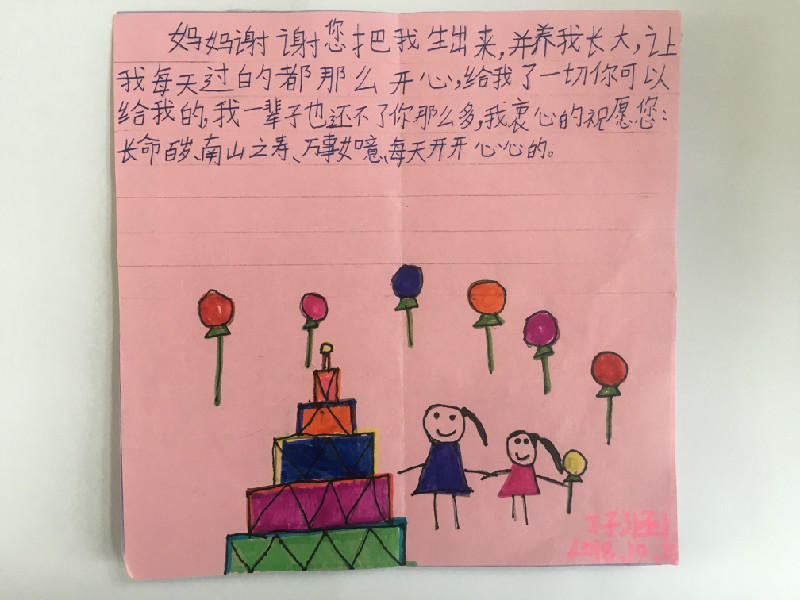 妈妈谢谢您把我生出来,并养我长大,让
我每天过的都那么开心,给我了一切你可以
给我的,我一辈子也还不了你那么多,我衷心的祝愿您:
长命百岁、南山之寿、万事如意、每天开开心心的。
2018.10